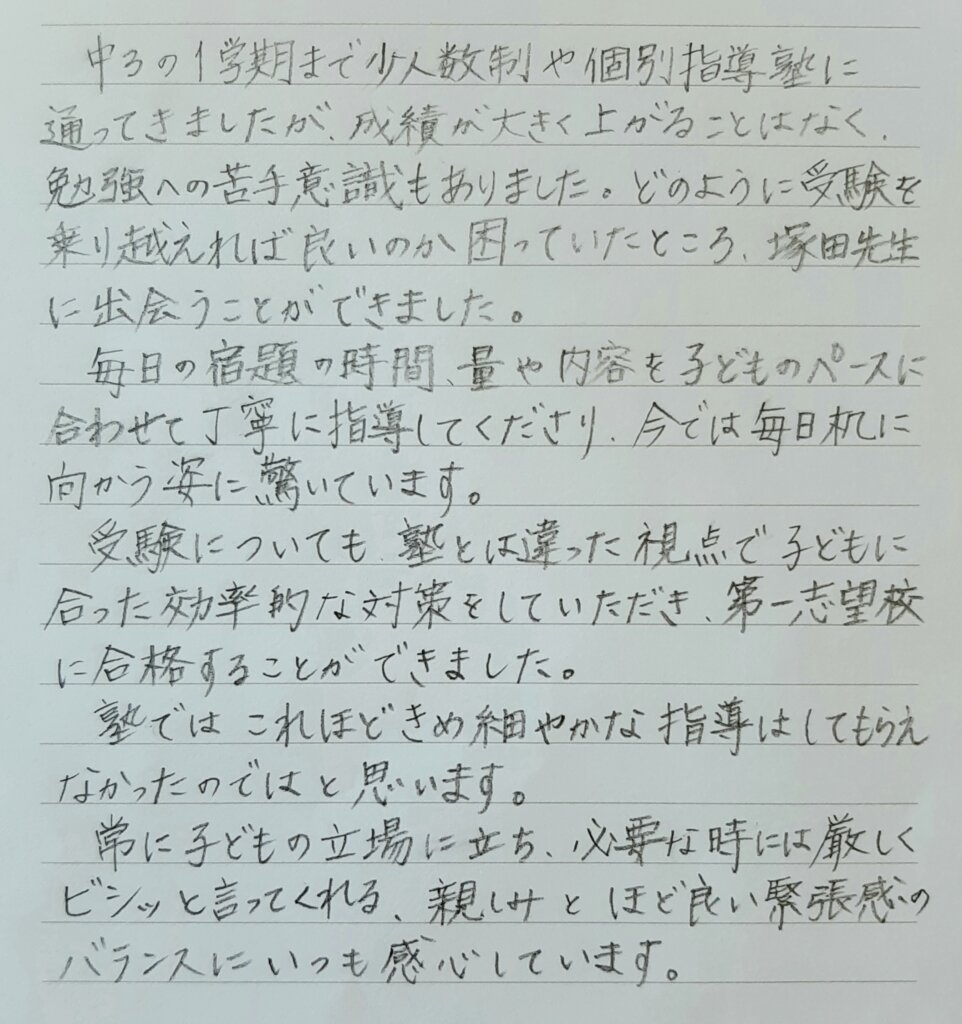 中3の1学期まで少人数制や個別指導塾に
通ってきましたが、成績が大きく上がることはなく、
勉強への苦手意識もありました。どのように受験を
乗り越えれば良いのか困っていたところ、塚田先生
に出会うことができました。
毎日の宿題の時間、量や内容を子どものペースに
合わせて丁寧に指導してくださり、今では毎日机に
向かう姿に驚いています。
受験についても、塾とは違った視点で子どもに
合った効率的な対策をしていただき、第一志望校
に合格することができました。
塾ではこれほどきめ細やかな指導はしてもらえ
なかったのではと思います。
常に子どもの立場に立ち、必要な時には厳しく
ビシッと言ってくれる、親しみとほど良い緊張感の
バランスにいつも感心しています。